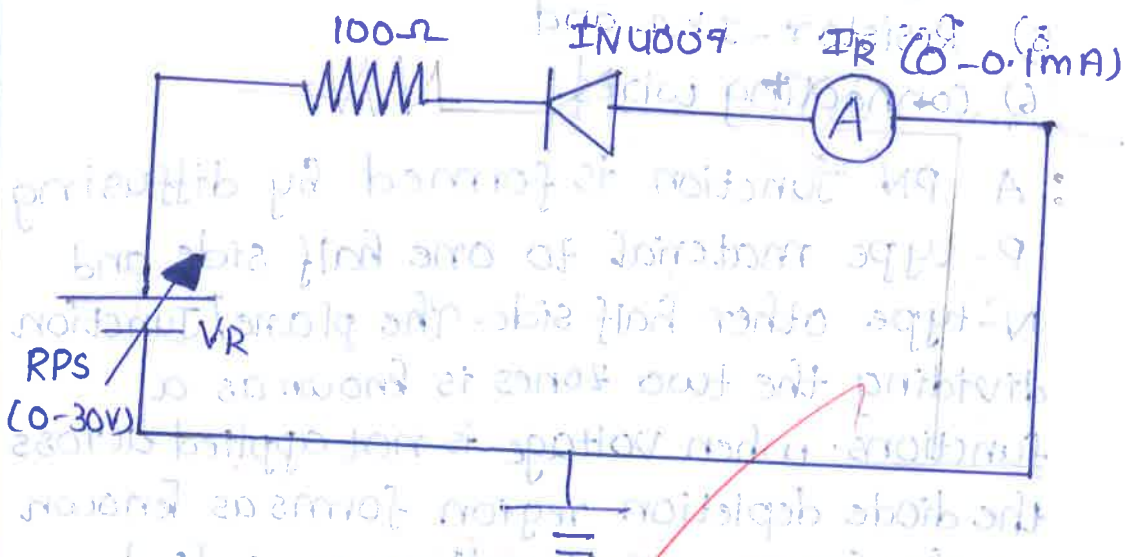 100Ω
IN4009
IR (0-0.1mA)
A
VR
RPS
(0-30V)